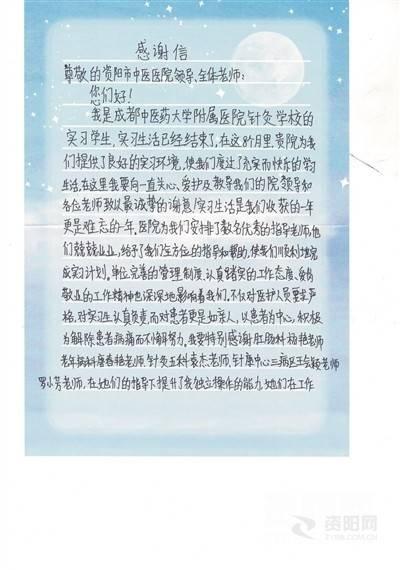 感谢信
尊敬的资阳市中医医院领导、全体老师：
您们好！
我是成都中医药大学附属医院针灸学校的
实习学生，实习生活已经结束了，在这8个月里，贵院为我
们提供了良好的实习环境，使我们度过了充实而快乐的学习
生活，在这里我要向一直关心、爱护及教导我们的院领导和
各位老师致以最诚挚的谢意！实习生活是我们收获的一年
更是难忘的一年。医院为我们安排了数名优秀的指导老师，他
们兢兢业业，给予了我们全方位的指导和帮助，使我们顺利地完
成实习计划。单位完善的管理制度、认真踏实的工作态度、爱岗
敬业的工作精神也深深地影响着我们，不仅对医护人员要求严
格，对实习生认真负责，而对患者更是如亲人，以患者为中心，积极
为解除患者病痛而不懈努力。我要特别感谢肛肠科杨艳老师
老年病科唐春艳老师，针灸五科袁杰老师，针康中心三病区王会颖老师
罗小芳老师，在她们的指导下提升了我独立操作的能力，她们在工作
资阳网